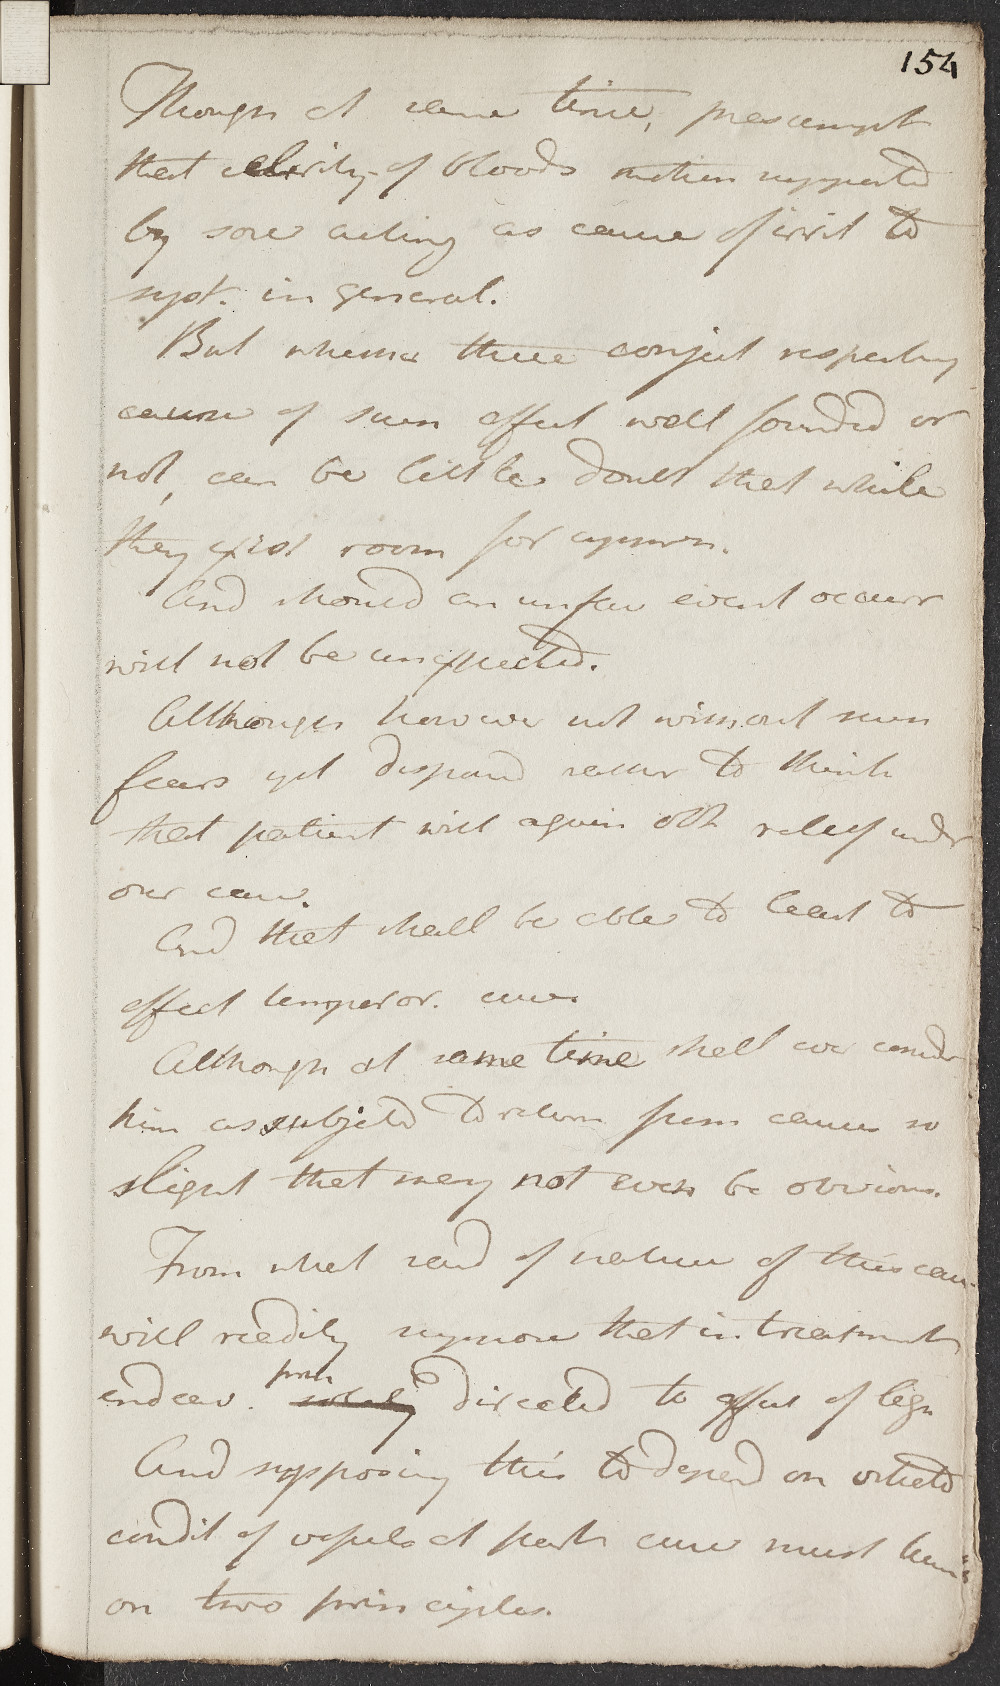 154
Though at same time, presumpt
that celerity of bloods motion supported
by sore acting as cause of irrit to
syst. in general.
But whether these conject respecting
cause of such effect well founded or
not, can be little doubt that while
they exist room for apprehn.
And should an unfav event occurr
will not be unexpected.
Although however not without such
fears yet disposed rather to think
that patient will again obt relief under
our care.
And that shall be able to least to
effect temporar. cure
Although at same time shall ever consider
him as subjected to return from causes so
slight that may not even be obvious.
From what said of nature of this case
will readily suppose that in treatment
endeav. princ directed to affect of legs
And supposing this to depend on
condit of vessels at part cure must turn
on two principles.